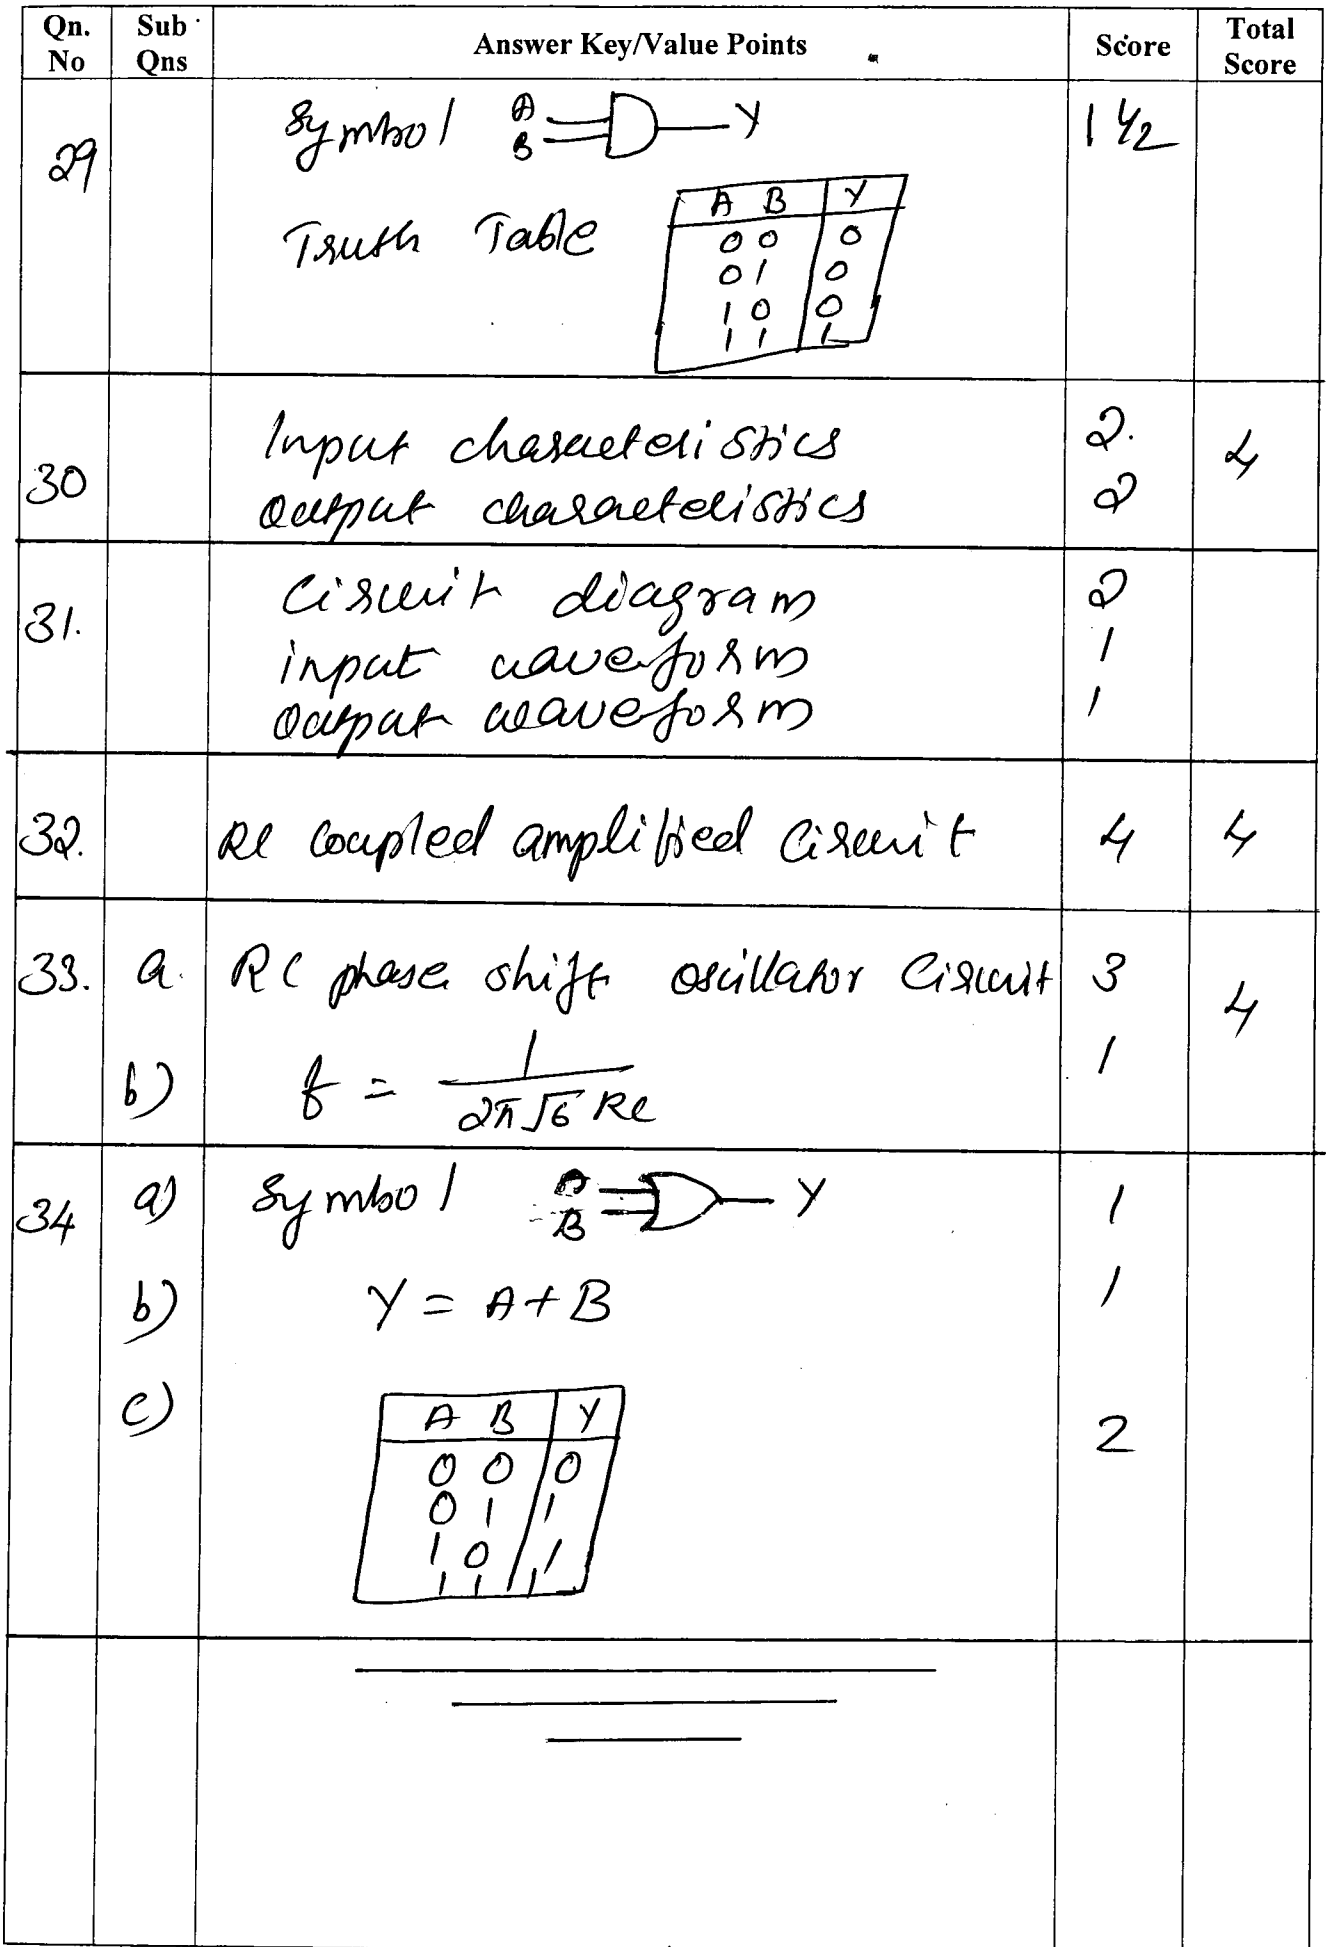 Qn. No Sub Qns Answer Key/Value Points Score Total Score
29 Symbol A B Y 1 1/2
Truth Table
A B Y
0 0 0
0 1 0
1 0 0
1 1 1
30 Input characteristics 2. 4
Output characteristics 2
31. Circuit diagram 2
input waveform 1
Output waveform 1
32. RC coupled amplified Circuit 4 4
33. a. RC phase shift oscillator Circuit 3 4
b) f = 1 / 2π√6 RC 1
34 a) Symbol A B Y 1
b) Y = A + B 1
c) 2
A B Y
0 0 0
0 1 1
1 0 1
1 1 1